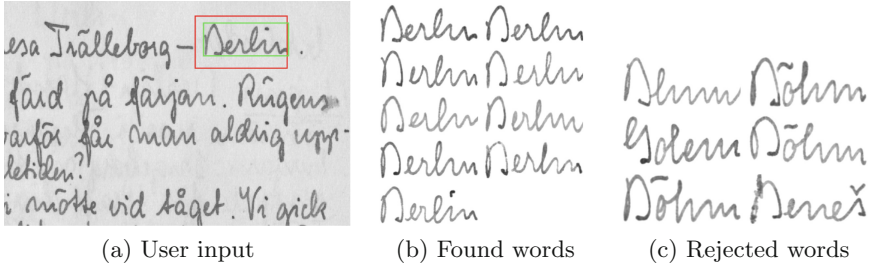 esa Trälleborg – Berlin.
färd på färjan. Rügens
varför får man aldrig upp-
letiden?
i mötte vid tåget. Vi gick
(a) User input
Berlin Berlin
Berlin Berlin
Berlin Berlin
Berlin Berlin
Berlin
(b) Found words
Blum Böhm
Golem Böhm
Böhm Beneš
(c) Rejected words